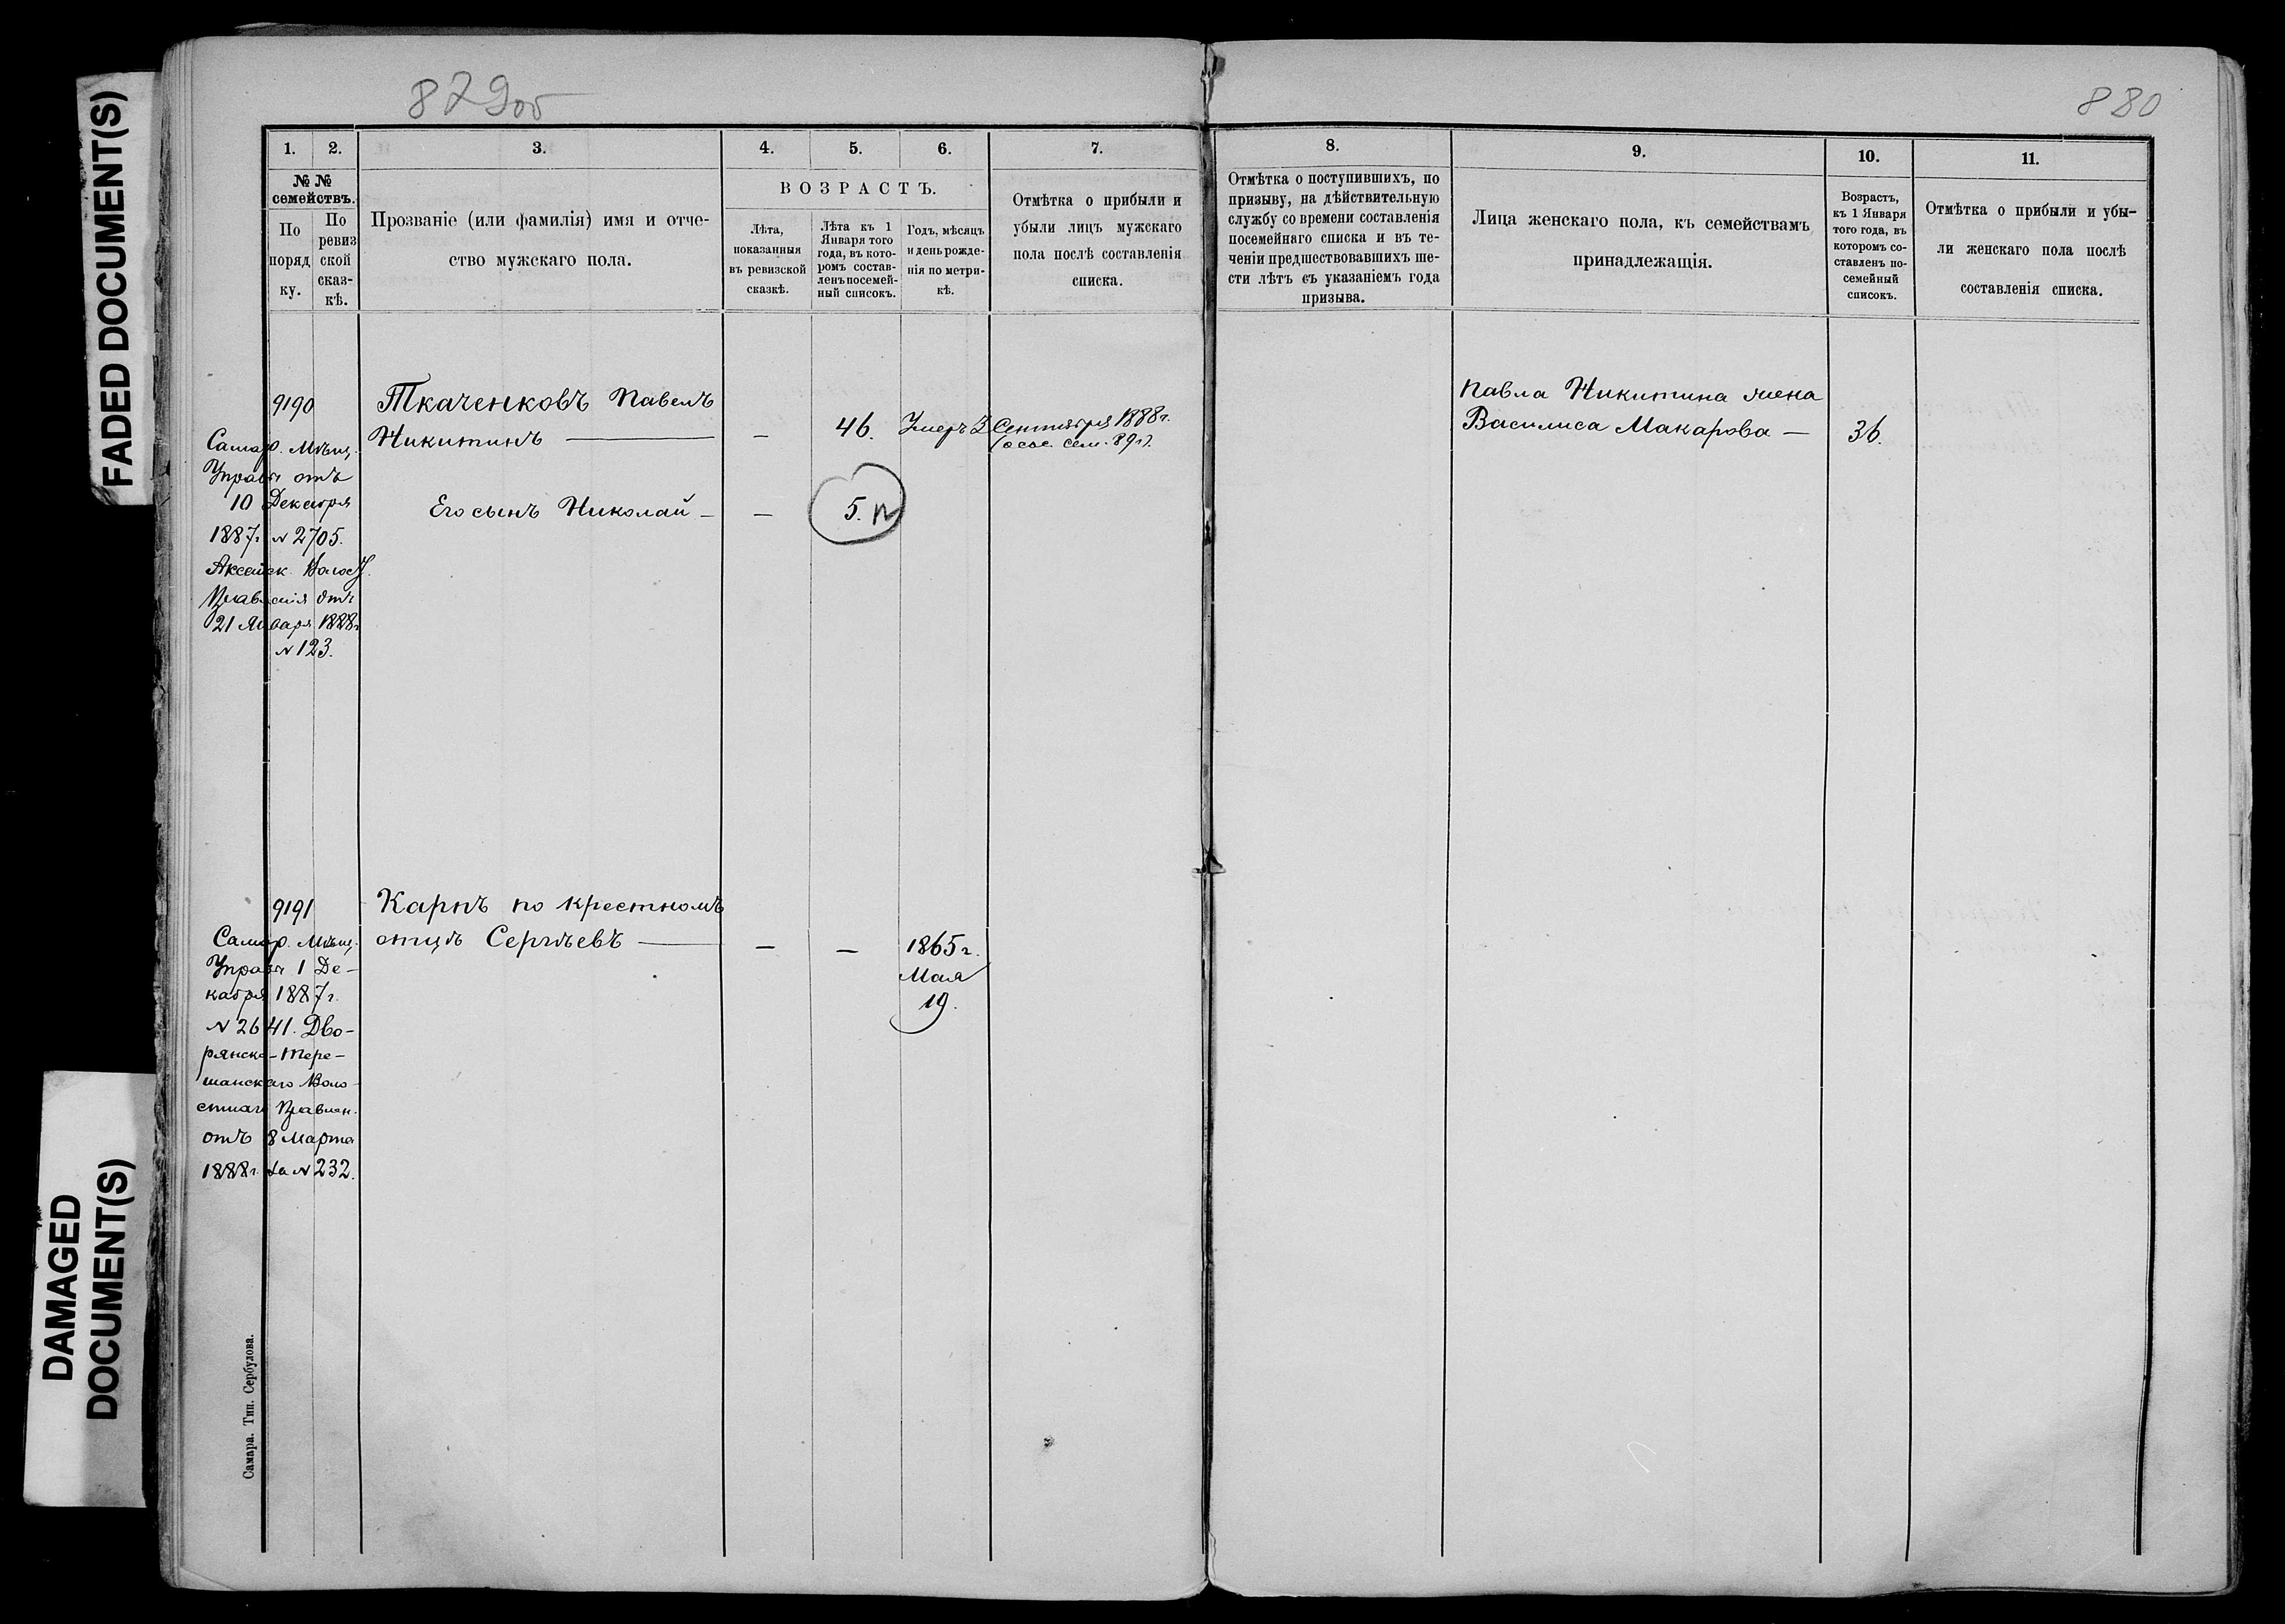 FADED DOCUMENT(S)
DAMAGED
DOCUMENT(S)
879об
880
1. 2. 3. 4. 5. 6. 7.
№ №
семействъ.
По
поряд
ку.
По
ревиз
ской
сказ-
кѣ.
Прозваніе (или фамилія) имя и отче-
ство мужскаго пола.
ВОЗРАСТЪ.
Лѣта,
показанныя
въ ревизской
сказкѣ.
Лѣта къ 1
Января того
года, въ кото-
ромъ состав-
ленъ посемей-
ный списокъ.
Годъ, мѣсяцъ
и день рожде-
нія по метри-
кѣ.
Отмѣтка о прибыли и
убыли лицъ мужскаго
пола послѣ составленія
списка.
8. 9. 10. 11.
Отмѣтка о поступившихъ, по
призыву, на дѣйствительную
службу со времени составленія
посемейнаго списка и въ те-
ченіи предшествовавшихъ ше-
сти лѣтъ съ указаніемъ года
призыва.
Лица женскаго пола, къ семействамъ
принадлежащія.
Возрастъ,
къ 1 Января
того года, въ
которомъ со-
ставленъ по-
семейный
списокъ.
Отмѣтка о прибыли и убы-
ли женскаго пола послѣ
составленія списка.
9190
Самар. Мѣщ.
Управы отъ
10 Декабря
1887г. № 2705.
Волост.
Правленія отъ
21 Января 1888г.
№ 123.
Ткаченковъ Павелъ
Никитинъ — — 46. Умеръ 3 Сентября 1888г.
Его сынъ Николай — — 5.
Павла Никитина жена
Василиса Макарова — 36.
9191
Самар. Мѣщ.
Управы 1 Де-
кабря 1887г.
№ 2641. Дво-
рянско-Тере-
шанскаго Воло-
стнаго Правлен.
отъ 8 Марта
1888г. за № 232.
Карпъ по крестномъ
отцѣ Сергѣевъ — — — 1865г.
Мая
19.
Самара. Тип. Сербулова.